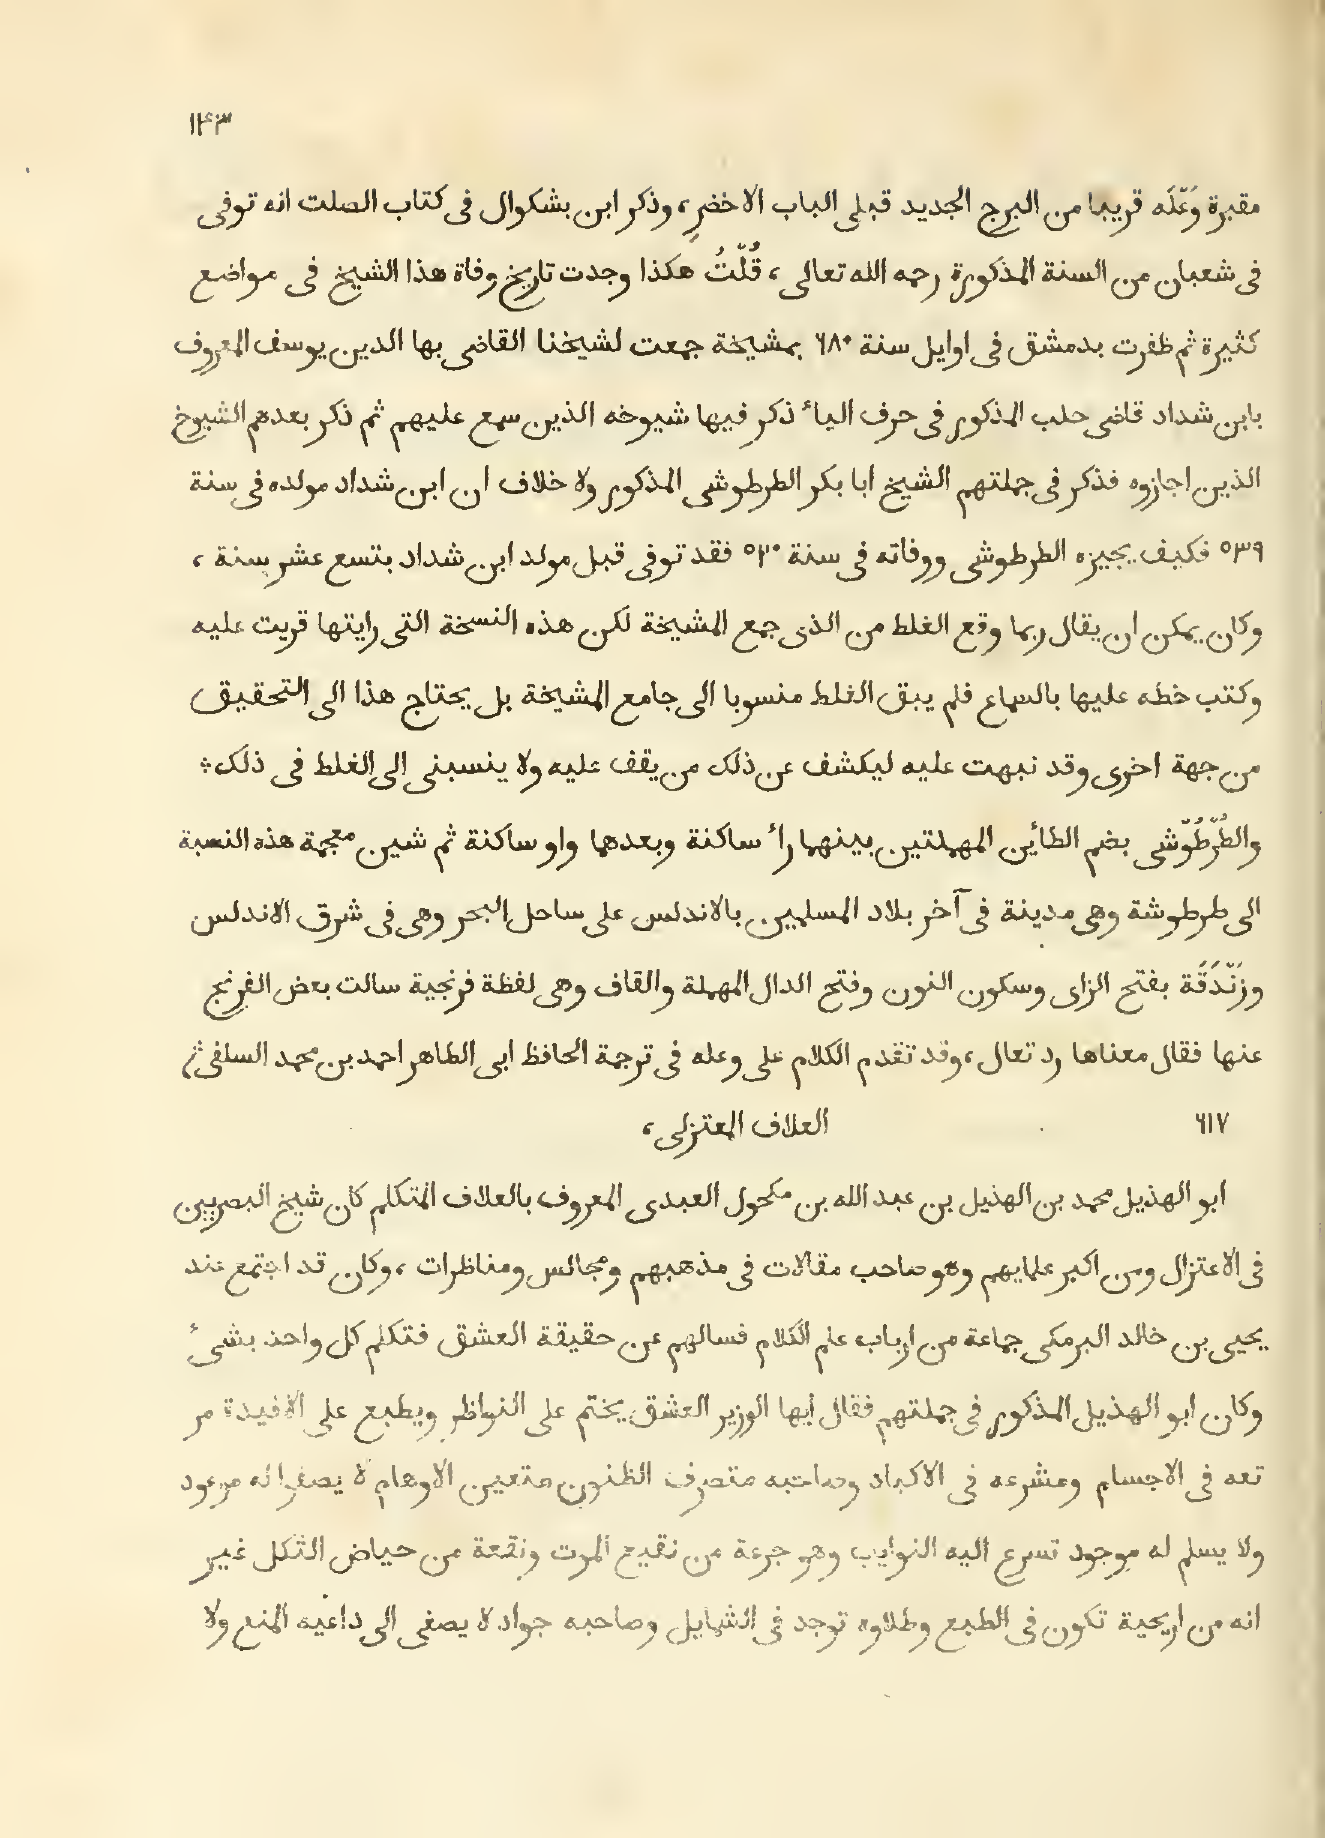 ١٤٣
مقبرة وَعّلَه قريبا من البرج الجديد قبلى الباب الاخضر، وذكر ابن بشكوال فى كتاب الصلت انه توفى
فى شعبان من السنة المذكورة رحمه الله تعالى، قُلّتُ هكذا وجدت تاريخ وفاة هذا الشيخ فى مواضع
كثيرة ثم ظفرت بدمشق فى اوايل سنة ٦٨٠ بمشيخة جمعت لشيخنا القاضى بها الدين يوسف المعروف
بابن شداد قاضى حلب المذكور فى حرف الياء ذكر فيها شيوخه الذين سمع عليهم ثم ذكر بعدهم الشيوخ
الذين اجازوه فذكر فى جملتهم الشيخ ابا بكر الطرطوشى المذكور ولا خلاف ان ابن شداد مولده فى سنة
٥٣٩ فكيف يجيزه الطرطوشى ووفاته فى سنة ٥٢٠ فقد توفى قبل مولد ابن شداد بتسع عشر سنة،
وكان يمكن ان يقال ربما وقع الغلط من الذى جمع المشيخة لكن هذه النسخة التى رايتها قريت عليه
وكتب خطه عليها بالسماع فلم يبق الغلط منسوبا الى جامع المشيخة بل يحتاج هذا الى التحقيق
من جهة اخرى وقد نبهت عليه ليكشف عن ذلك من يقف عليه ولا ينسبنى الى الغلط فى ذلك
والطُرّطُوّشى بضم الطائين المهملتين بينهما راء ساكنة وبعدها واو ساكنة ثم شين معجمة هذه النسبة
الى طرطوشة وهى مدينة فى آخر بلاد المسلمين بالاندلس على ساحل البحر وهى فى شرق الاندلس
ورَنّدَقَة بفتح الزاى وسكون النون وفتح الدال المهملة والقاف وهى لفظة فرنجية سالت بعض الفرنج
عنها فقال معناها رد تعال، وقد تقدم الكلام على وعله فى ترجمة الحافظ ابى الطاهر احمد بن محمد السلفى
٦١٧ العلاف المعتزلى،
ابو الهذيل محمد بن الهذيل بن عبد الله بن مكحول العبدى المعروف بالعلاف المتكلم كان شيخ البصريين
فى الاعتزال ومن اكبر علمايهم وهو صاحب مقالات فى مذهبهم ومجالس ومناظرات، وكان قد اجتمع عند
يحيى بن خالد البرمكى جماعة من ارباب علم الكلام فسالهم عن حقيقة العشق فتكلم كل واحد بشىء
وكان ابو الهذيل المذكور فى جملتهم فقال أيها الوزير العشق يختم على النواظر ويطبع على الافيدة مر
تعه فى الاجسام ومشرعه فى الاكباد وصاحبه متصرف الظنون متعين الاوهام لا يصفوا له موعود
ولا يسلم له موجود تسرع اليه النوايب وهو جرعة من نقيع الموت ونقعة من حياض الثكل غير
انه من اريحية تكون فى الطبع وطلاوه توجد فى الشمايل وصاحبه جواد لا يصغى الى داعيه المنع ولا